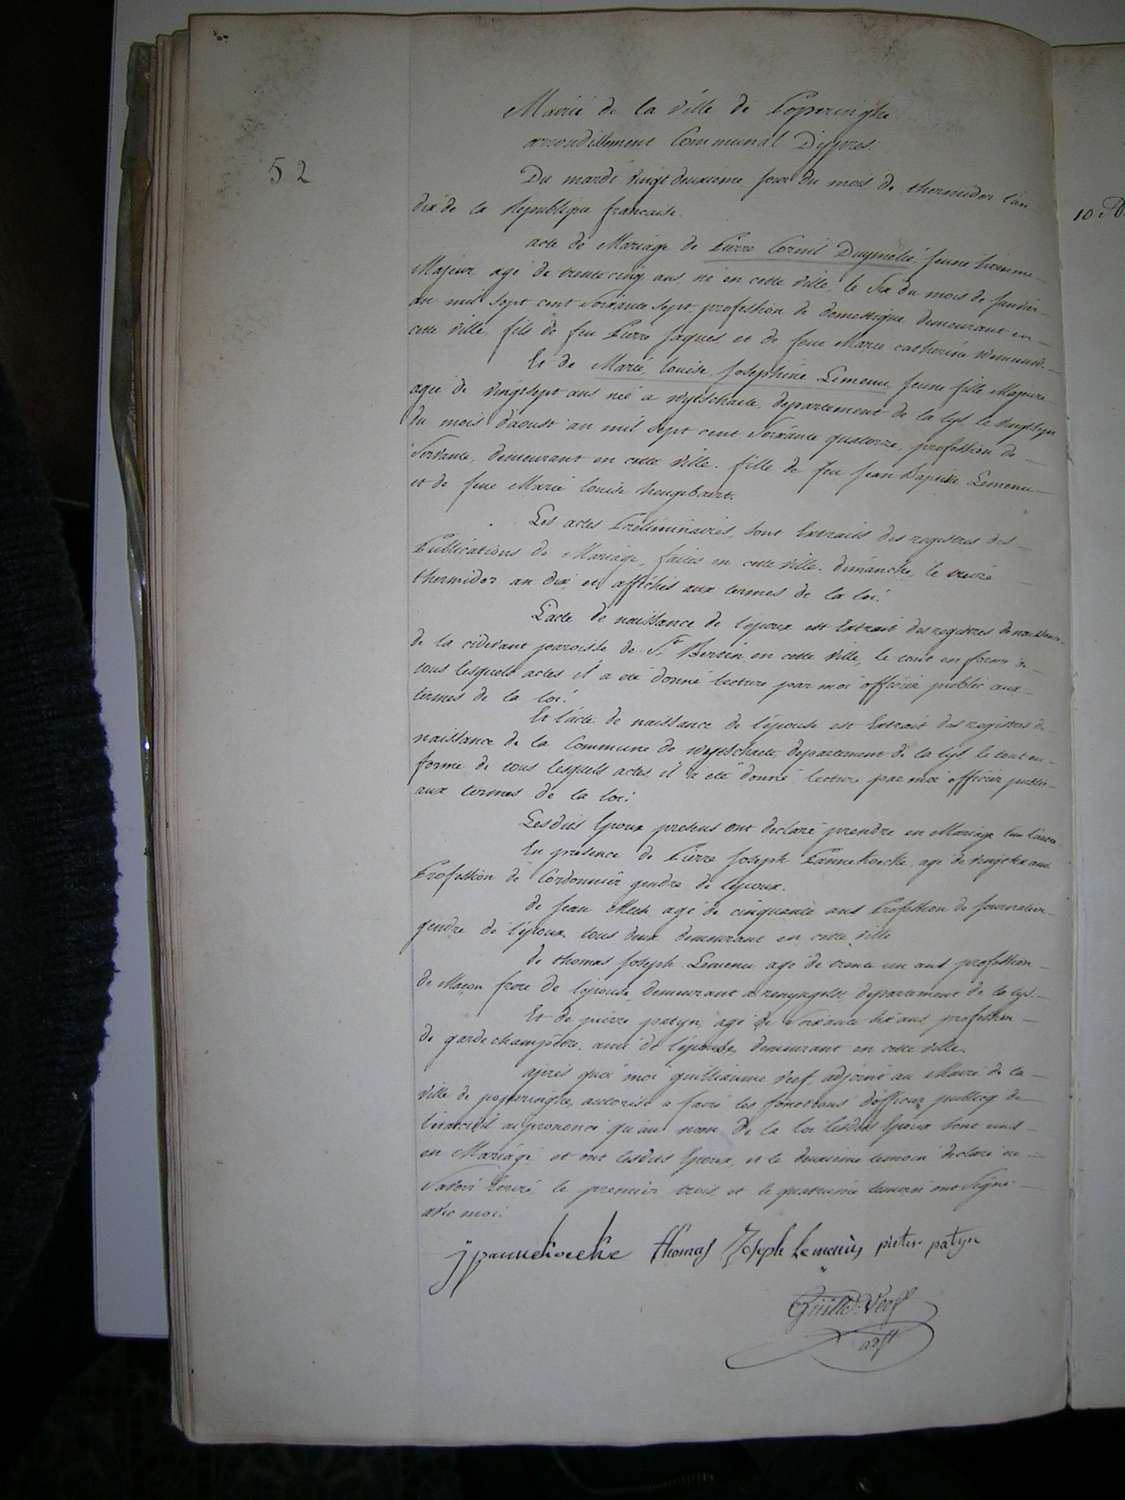 Mairie de la ville de Poperinghe
arrondissement Communal Dijpres.
52
Du mardi vingt deuxieme jour du mois de thermidor l'an
dix de la Republique francaise.
10
acte de Mariage de Pierre Cornil Duijmelie, jeune homme
Majeur agé de trente cinq ans, né en cette ville, le six du mois de janvier
an mil sept cent soixante sept, profession de domestique demeurant en
cette ville, fils de feu Pierre Jaques et de feue Marie catherine
Et de Marie Louise Josephine Lemenu, jeune fille Majeure
agée de vingtsept ans née a wijtschaete, departement de la Lijs le vingtsept
du mois d'aoust an mil sept cent soixante quatorze, profession de
servente, demeurant en cette ville, fille de feu Jean Baptiste Lemenu
et de feue Marie Louise
Les actes Préliminaires, sont Extraits des registres des
Publications de Mariage, faites en cette ville, dimanche, le treize
thermidor an dix et affichés aux termes de la loi.
L'acte de naissance de l'epoux est Extrait des registres de naissance
de la cidevant parroisse de St Bertin en cette ville, le tout en forme de
tous lesquels actes il a eté donné lecture par moi officier public aux
termes de la loi.
Et l'acte de naissance de l'épouse est Extrait des registres de
naissance de la Commune de wijtschaete, departement de la Lijs le tout en
forme de tous lesquels actes il a eté donné lecture par moi officier public
aux termes de la loi.
Lesdits Epoux presens ont declaré prendre en Mariage l'un l'autre
En presence de Pierre Joseph Pannekoecke, agé de ans
Profession de Cordonnier gendre de l'epoux.
de Jean agé de cinquante ans Profession de journalier
gendre de l'epoux tous deux demeurant en cette ville
de thomas Joseph Lemenu agé de trente un ans profession
de Maçon frere de l'epouse demeurant a renijngelst departement de la Lijs
Et de pierre patijn, agé de soixante six ans profession
de garde champetre ami de l'epouse, demeurant en cette ville.
apres quoi moi guilliaume Verf, adjoint au Maire de la
ville de poperinghe, autorisé a faire les fonctions d'officier publicq de
l'etat civil ai prononcé qu'au nom de la loi lesdits Epoux sont unis
en Mariage et ont lesdits Epoux, et le deuxieme temoin declaré ne
savoir Ecrire le premier trois et le quatrieme temoin ont signé
avec moi.
j pannekoecke thomas Joseph Lemenu pieter patyn
Guille. Verf
adjt